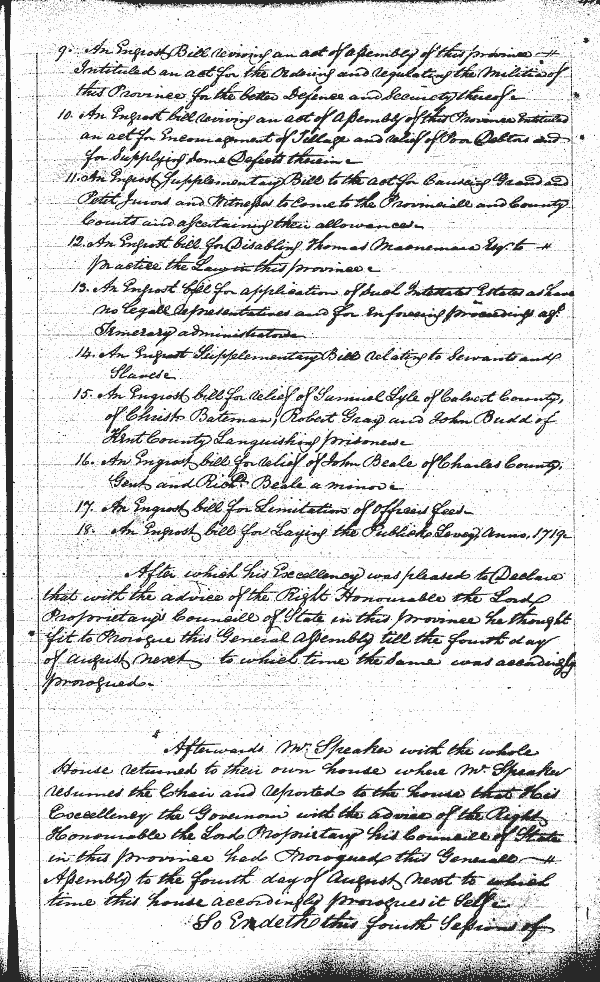 9. An Engrost Bill reviving an act of assembly of this province
Intituled an act for the Ordering and regulating the Militia of
this Province for the better Defence and Security thereof
10. An Engrost bill reviving an act of Assembly of this Province Intituled
an act for Encouragement of Tillage and relief of Poor Debtors and
for Supplying some Defects therein
11. An Engrost Supplementary Bill to the act for Causeing Grand and
Petit Jurors and Witnesses to Come to the Provinciall and County
Courts and ascertaining their allowances
12. An Engrost bill for Disabling Thomas Macnemara Esqr. to
practice the Law in this province
13. An Engrost bill for application of such Intestates Estates as have
no legall representatives and for Enforceing proceedings agt.
Temerary administrators
14. An Engrost Supplementary Bill relating to Servants and
Slaves
15. An Engrost bill for relief of Samuel Lyle of Calvert County,
of Christ. Bateman, Robert Gray and John Budd of
Kent County Languishing prisoners
16. An Engrost bill for relief of John Beale of Charles County,
Gent and Richd. Beale a minor
17. An Engrost bill for Limitation of Officers fees
18. An Engrost bill for Laying the Publick Levey, Anno, 1719
After which his Excellency was pleased to Declare
that with the advice of the Right Honourable the Lord
Proprietarys Councill of State in this Province he thought
fit to Prorogue this General Assembly till the fourth day
of august next to which time the Same was accordingly
prorogued.
Afterwards Mr. Speaker with the whole
House returned to their own house where Mr. Speaker
resumes the Chair and reported to the house that His
Excellency the Governour with the advice of the Right
Honourable the Lord Proprietary his Councill of State
in this province had Prorogued this Generall
Assembly to the fourth day of August next to which
time this house accordingly prorogues it Self
So Endeth this fourth Sessions of